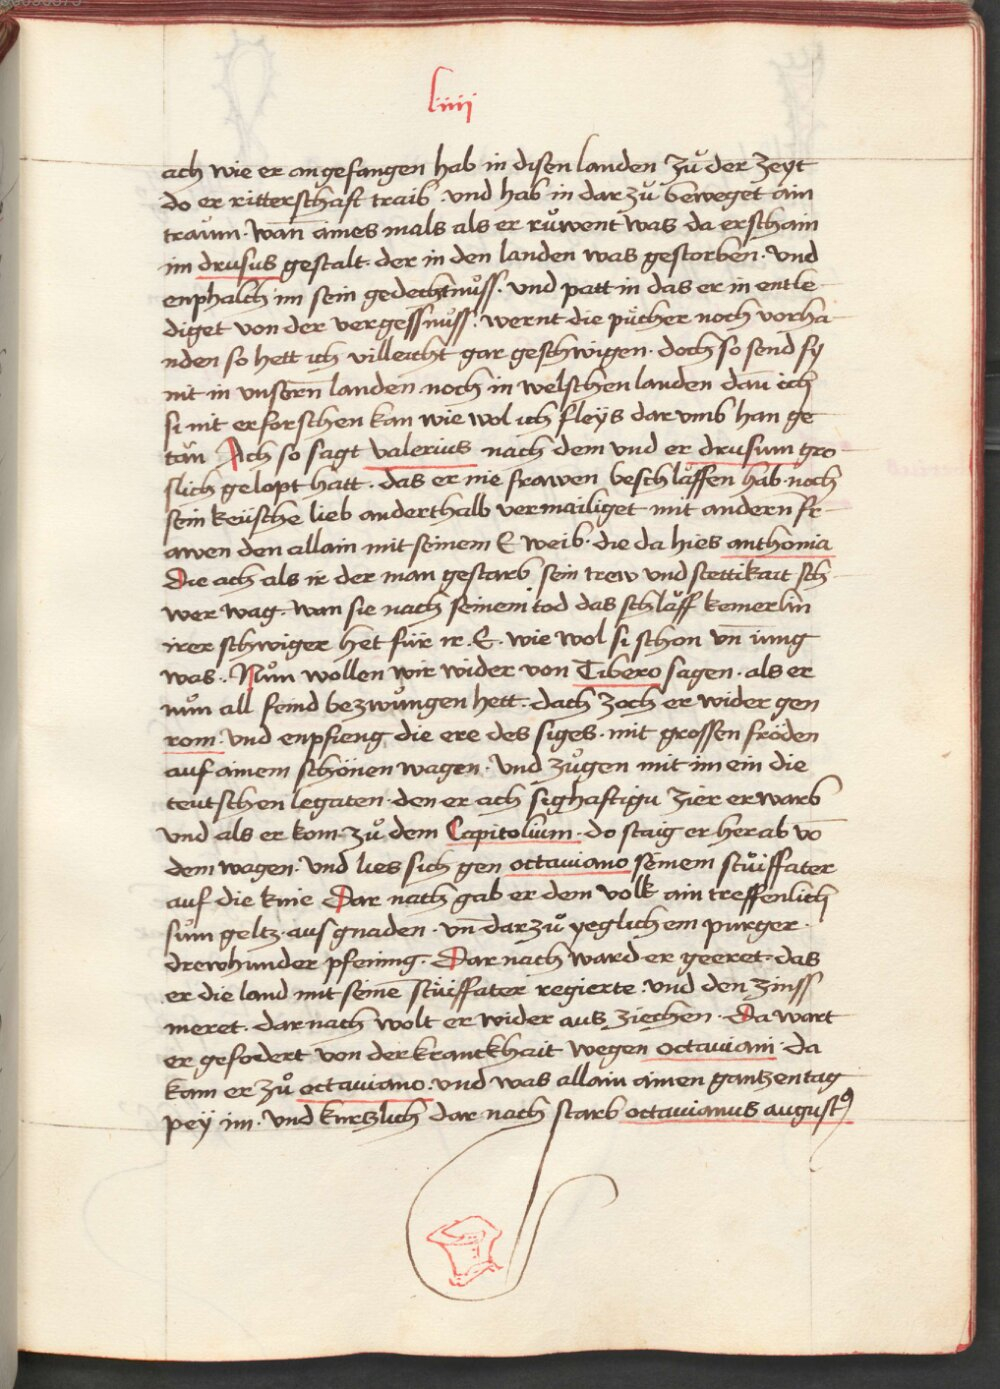 liiii
ach wie er angefangen hab in disen landen zuͦ der zeyt
do er ritterschaft traib · und hab in dar zuͦ beweget ain
traům · wan̄ aines mals als er růwent was da erschain
im drusus gestalt · der in den landen was gestorben · und
enphalch im sein gedechtnůss · und patt in das er in entle
diget von der vergessnůss · wernt die pücher noch vorha
nden so hett ich villeicht gar geschwigen · doch so send sy
nit in unsern landen noch in welschen landen dan̄ ich
si nit erforschen kan wie wol ich fleys dar umb han ge
tan Ach so sagt valerius nach dem und er drusum gro
slich gelopt hatt · das er nie frawen beschlåffen hab noch
sein keüsche lieb anderthalb vermailiget mit andern fr
awen den allain mit seinem E weib · die da hies anthonia
Die ach als ir der man gestarb sein trew und stettikait sch
wer wag · wan sie nach seinem tod das schlåff kemerlin
irer schwiger het für ir · E · wie wol si schon vn̄ iung
was · Nům wollen wir wider von Tibero sagen · als er
nům all feind bezwůngen hett · dach zoch er wider gen
rom · Und enpfieng die ere des siges · mit grossen fröden
auf ainem schönen wagen · Und zůgen mit im ein die
teutschen legaten · den er ach sighaftigu zier erwarb
Und als er kom · zů dem Capitolium · do staig er herab vō
dem wagen · Und lies sich gen octauiano seinem stůiffater
auf die knie Dar nach gab er dem volk ain treffenlich
sům geltz · aus gnaden · vn̄ dar zů yeglichem purger ·
drewhunder pfening · Dar nach ward er geeret · das
er die land mit seinē stůiffater regierte · Und den zinss
meret · dar nach wolt er wider aus ziechen · Da wart
er gefodert von der kranckhait wegen octauiani · da
kam er zů octauiano · und was allain ainen gantzen tag
pey im · Und kurtzlich dar nach starb octauianus august9